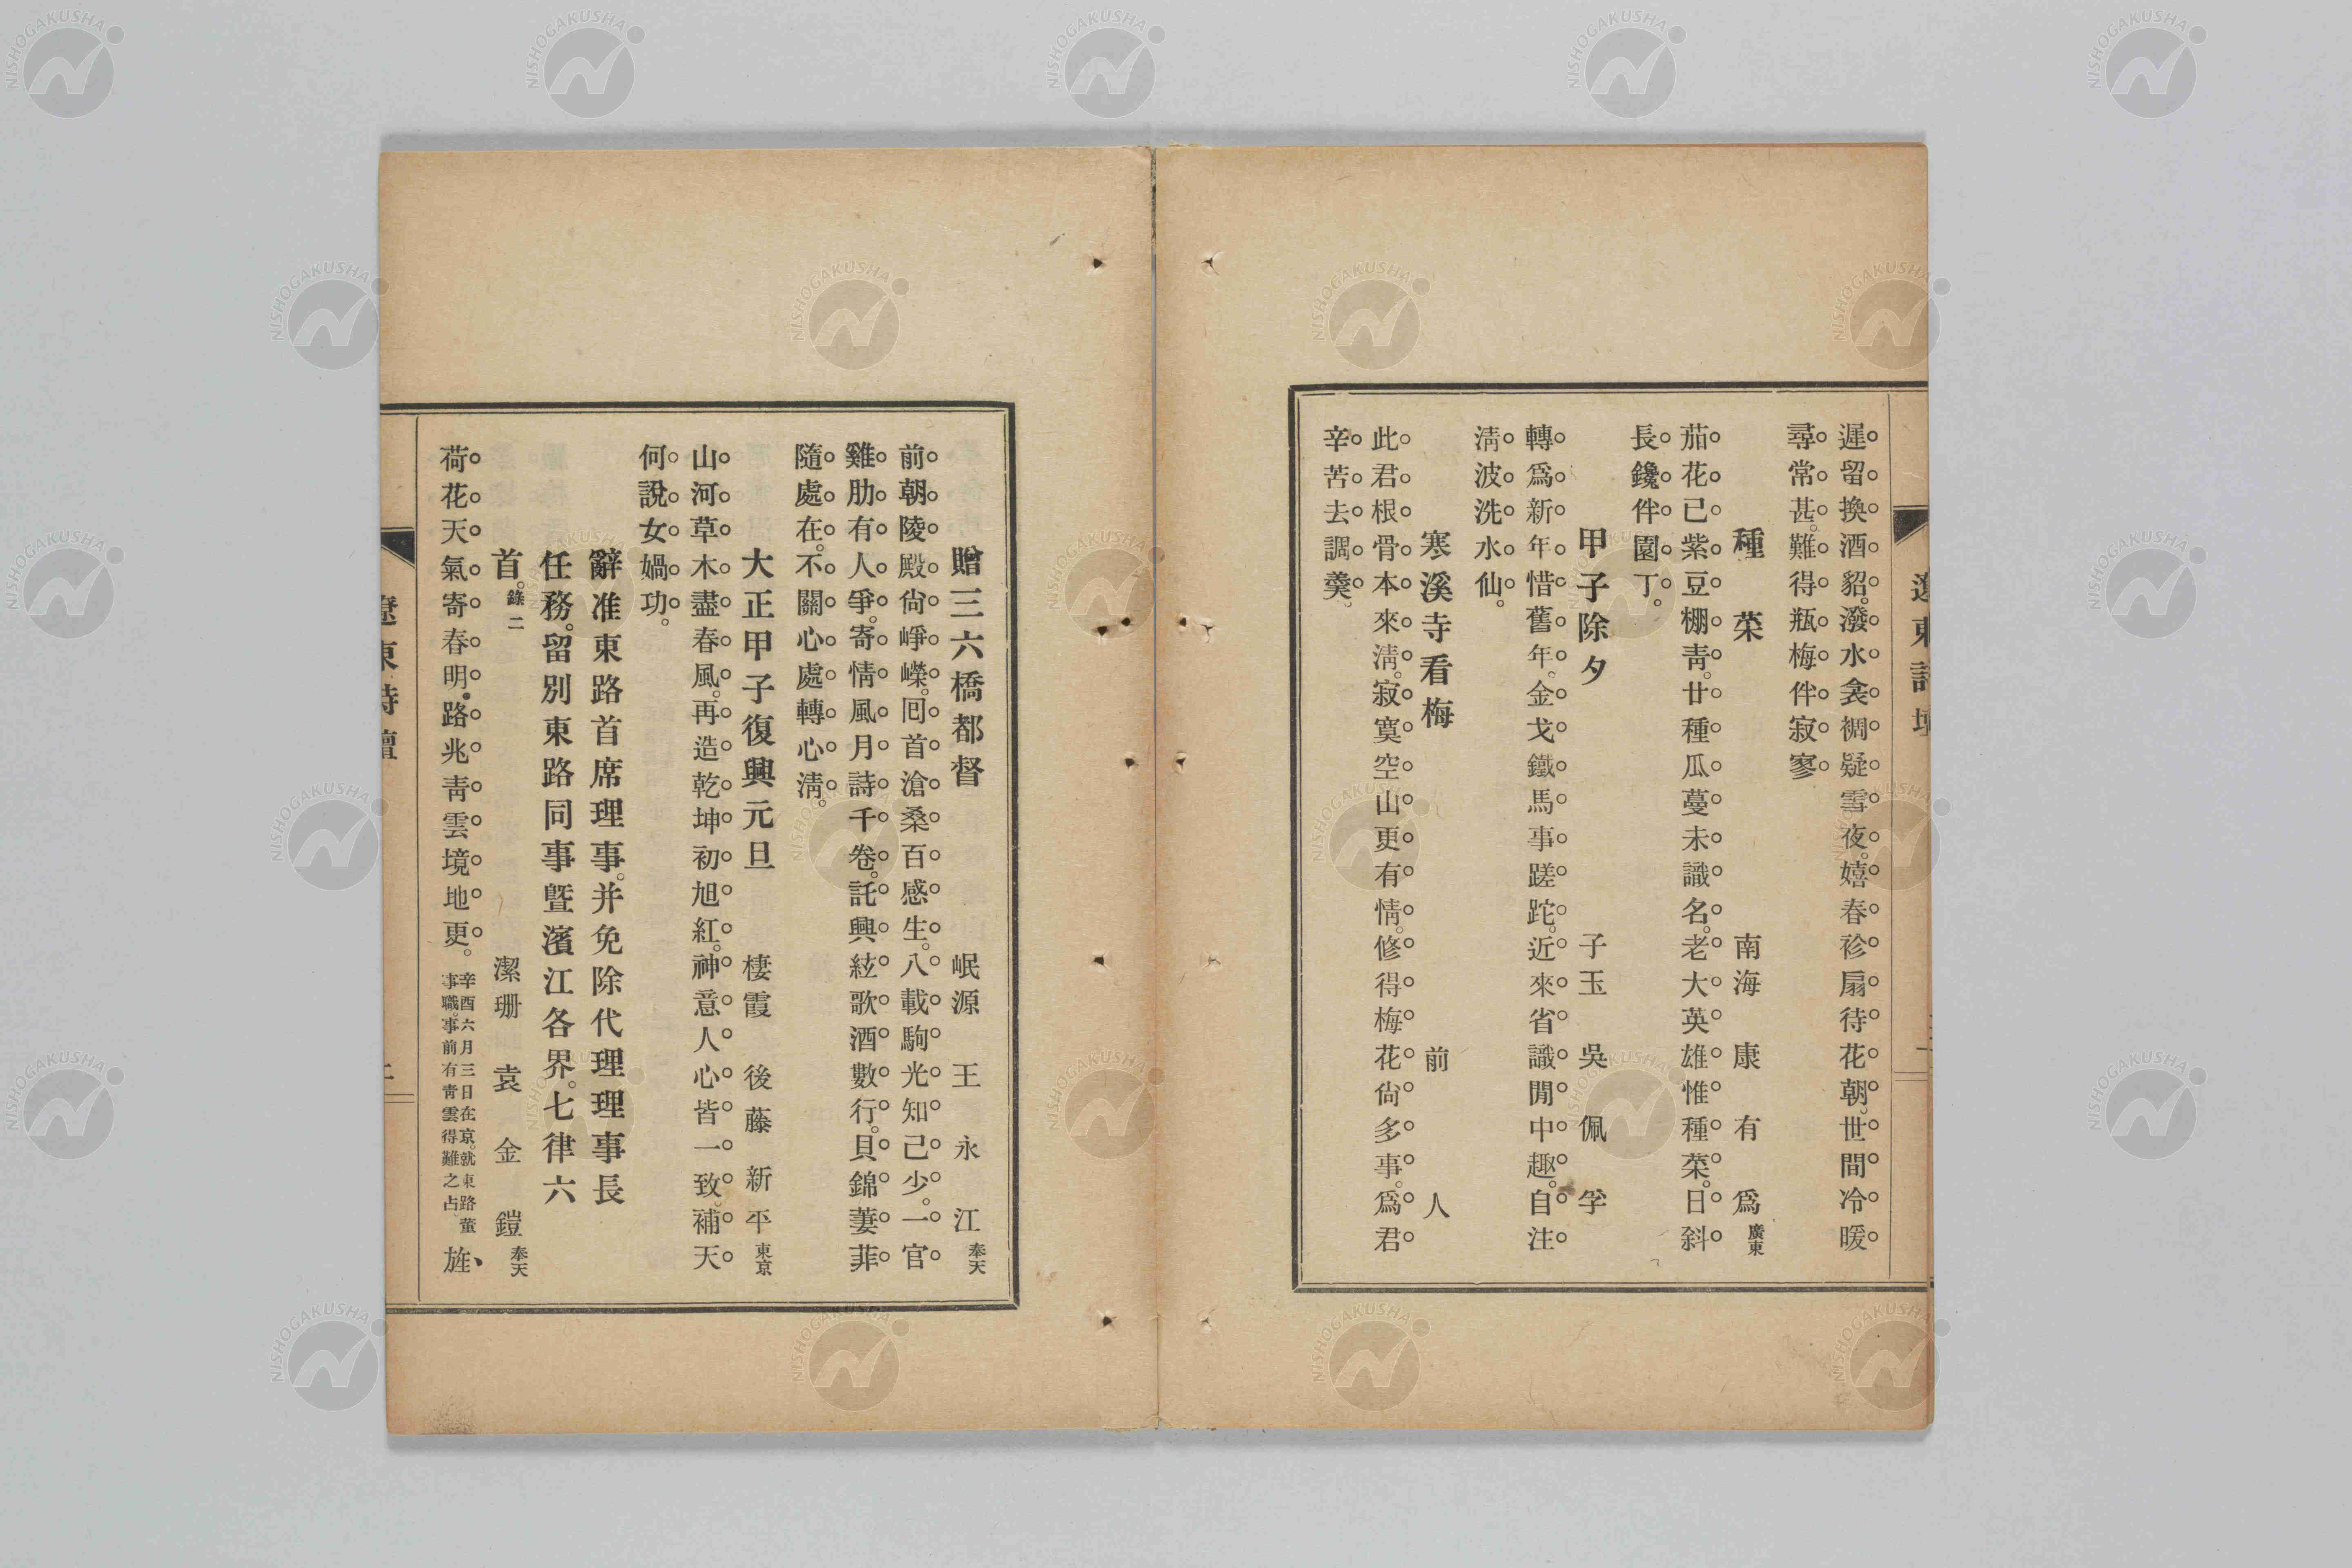 遲留換酒貂。潑水衾裯疑雪夜。嬉春袗扇待花朝。世間冷暖
尋常甚。難得瓶梅伴寂寥
種菜　南海　康有爲 廣東
茄花已紫豆棚靑。廿種瓜蔓未識名。老大英雄惟種菜。日斜
長鑱伴園丁。
甲子除夕　子玉　吳佩孚
轉爲新年惜舊年。金戈鐵馬事蹉跎。近來省識閒中趣。自注
淸波洗水仙。
寒溪寺看梅　前人
此君根骨本來淸。寂寞空山更有情。修得梅花尙多事。爲君
辛苦去調羹。
贈三六橋都督　岷源　王永江 奉天
前朝陵殿尙崢嶸。回首滄桑百感生。八載駒光知己少。一官
雞肋有人爭。寄情風月詩千卷。託興絃歌酒數行。貝錦萋菲
隨處在。不關心處轉心淸。
大正甲子復興元旦　棲霞　後藤新平 東京
山河草木盡春風。再造乾坤初旭紅。神意人心皆一致。補天
何說女媧功。
辭准東路首席理事。并免除代理理事長
任務。留別東路同事暨濱江各界。七律六
首。錄二　潔珊　袁金鎧 奉天
荷花天氣寄春明。路兆靑雲境地更。辛酉六月三日在京。就東路董事職。事前有靑雲得難之占。旌
遼東詩壇
NISHOGAKUSHA